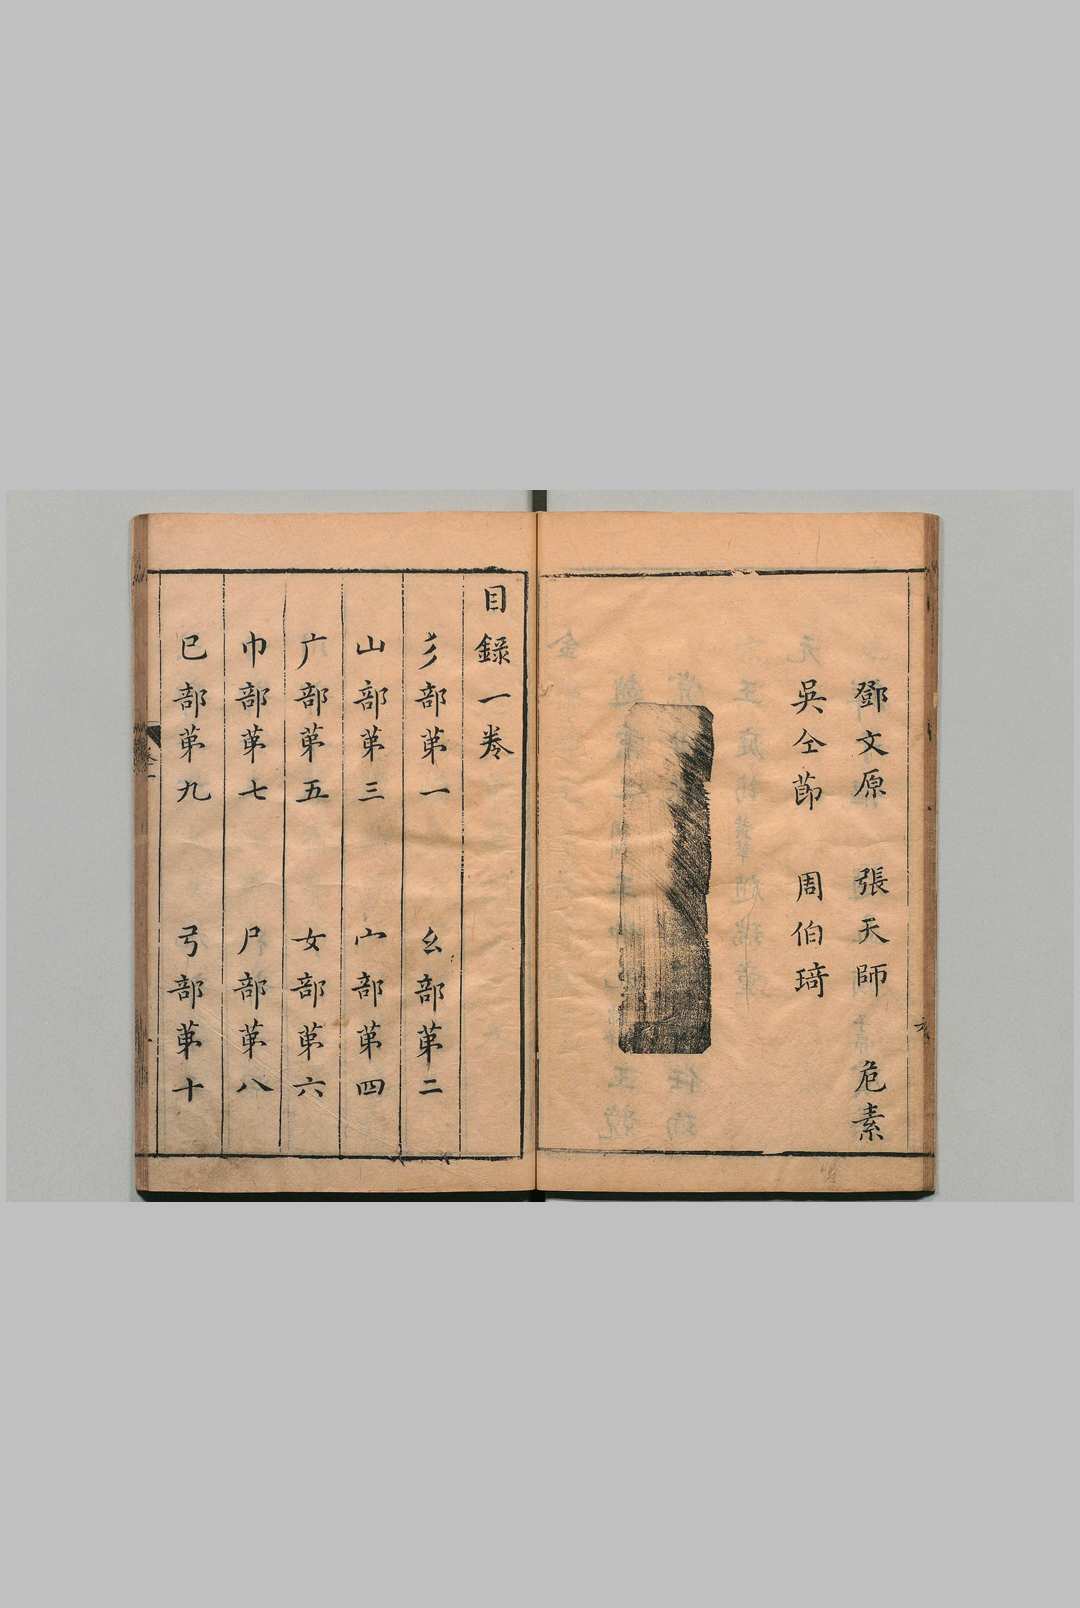 鄧文原 張天師 危素
吳仝節 周伯琦
目錄一卷
彡部第一 幺部第二
山部第三 宀部第四
广部第五 女部第六
巾部第七 尸部第八
巳部第九 弓部第十